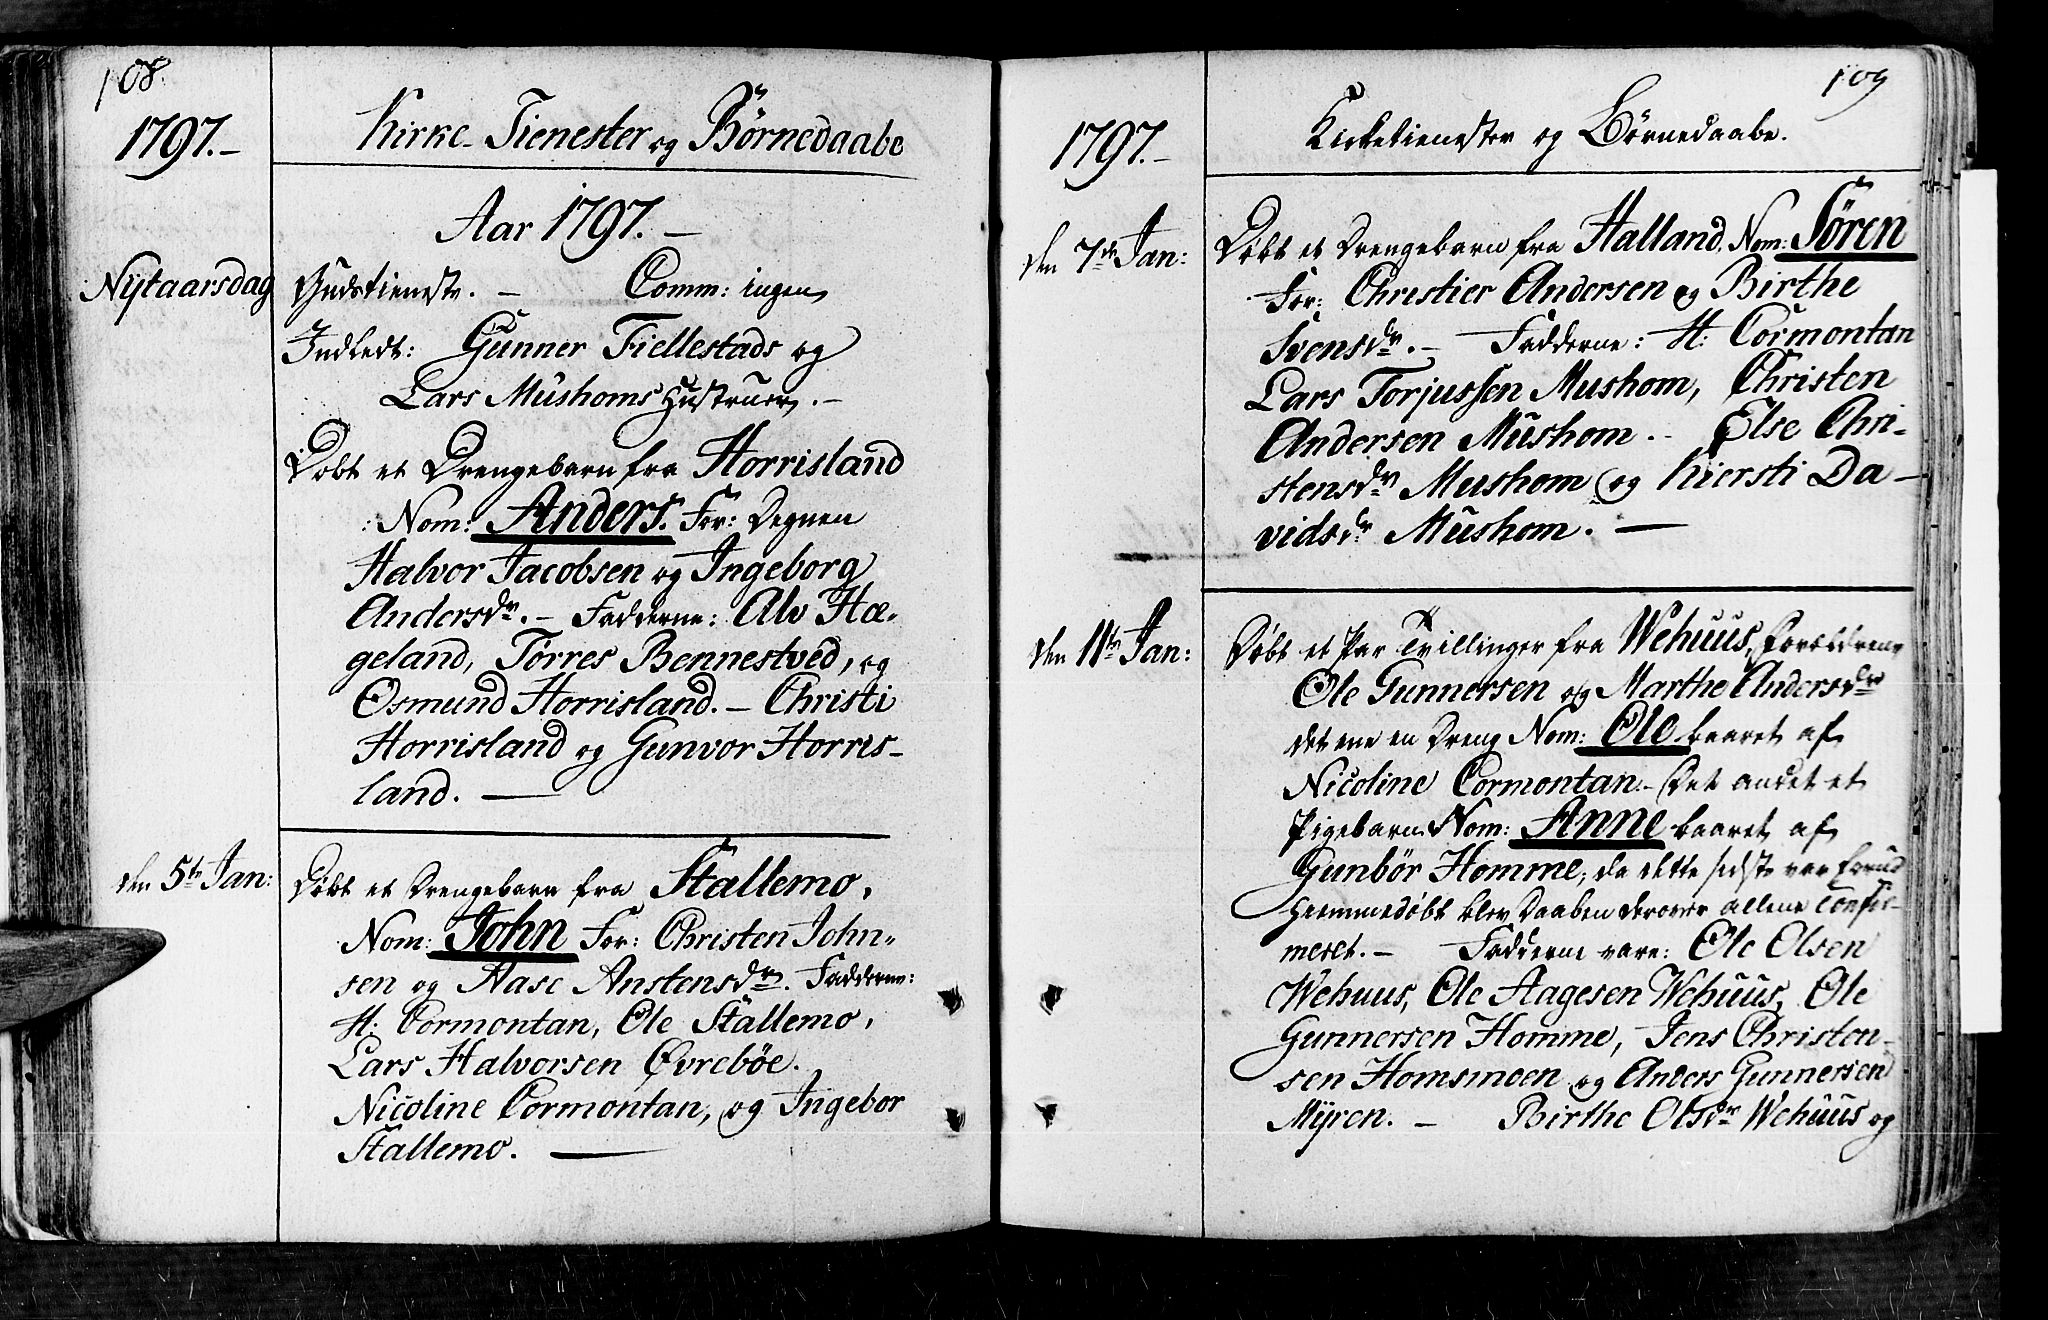 108.
1797.-
Kirke-Tienester og Børnedaabe
Aar 1797.-
Nÿtaarsdag
Gudstieneste. - Comm: ingen
Indledt: Gunner Fiellestads og
Lars Mushoms Hustruer.-
Døbt et Drengebarn fra Horrisland
Nom: Anders. For: Degnen
Halvor Jacobsen og Ingeborg
Andersdr.- Fadderne: Alv Hæ-
geland, Torres Bennestved, og
Osmund Horrisland.- Christi
Horrisland og Gunvor Horris-
land. —
den 5te Jan:
Døbt et Drengebarn fra Stallemo,
Nom: John For: Christen John-
sen og Aase Anstensdr. Fadderne:
H: Cormontan, Ole Stallemo,
Lars Halvorsen Øvrebøe.
Nicoline Cormontan, og Ingebor
Stallemo. —
109
1797.-
Kirketienester og Børnedaabe.
den 7de Jan:
Døbt et Drengebarn fra Halland, Nom: Sören
For: Christier Andersen og Birthe
Svensdr.- Fadderne: H: Cormontan
Lars Torjussen Mushom, Christen
Andersen Mushom.- Else Chri-
stensdr Mushom og Kiersti Da-
vidsdr Mushom. —
den 11te Jan:
Døbt et Par Tvillinger fra Wehuus, Forældrene
Ole Gunnersen og Marthe Andersdr
det ene en Dreng Nom: Ole baaret af
Nicoline Cormontan.- Det andet et
Pigebarn Nom: Anne baaret af
Gunbör Homme; da dette sidste var forud
hiemmedøbt blev Daaben derover allene Confir-
meret.- Fadderne vare: Ole Olsen
Wehuus, Ole Aagesen Wehuus, Ole
Gunnersen Homme, Jens Christen-
sen Homsmoen og Anders Gunnersen
Mÿren.- Birthe Olsdr Wehuus og